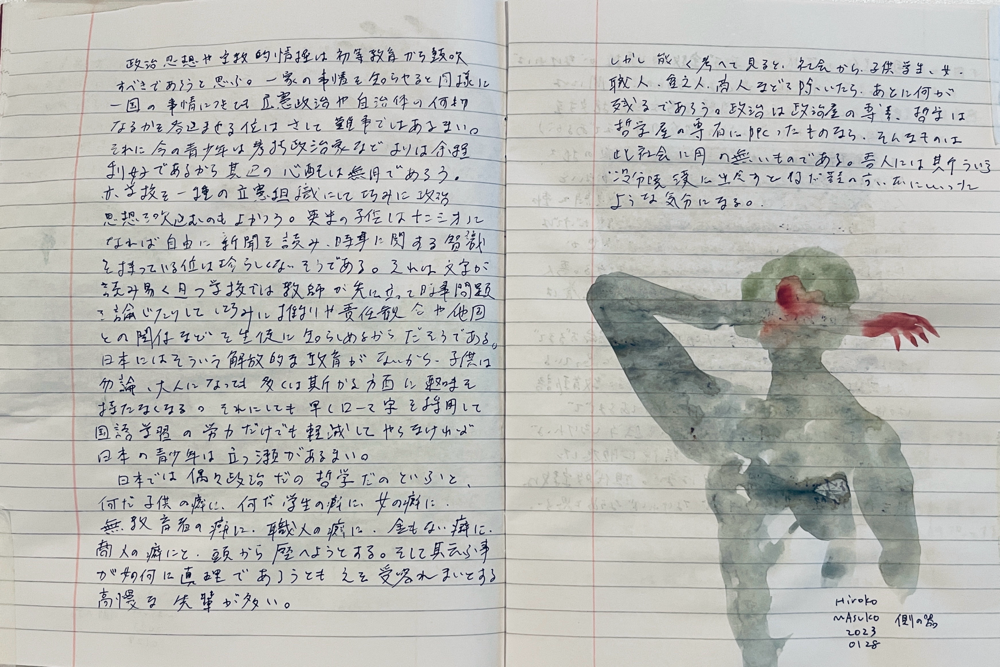 政治思想や宗教的情操は初等教育から鼓吹
すべきであろうと思ふ。一家の事情を知らせると同様に
一国の事情に注もし立憲政治や自治体の何物
なるかを呑込ませる位はさして難事ではあるまい。
それに今の青少年は老政治家などよりは余程
利好であるから其辺の心配は無用であろう。
亦学校を一種の立憲組織にして巧みに政治
思想を吹込むのもよかろう。英米の子供は十二三才に
なれば自由に新聞を読み、時事に関する智識
を持っている位は珍らしくないそうである。それは文字が
読み易く且つ学校では教師が先に立って時事問題
を論じたりして巧みに権利や責任観念や他国
との関係などを生徒に知らしめるからだそうである。
日本にはそういう解放的な教育がないから、子供は
勿論、大人になっても多くは斯かる方面に興味を
持たなくなる。それにしても早くローマ字を採用して
国語学習の労力だけでも軽減してやらなければ
日本の青少年は立つ瀬があるまい。
日本では偶々政治だの哲学だのといふと、
何だ子供の癖に、何だ学生の癖に、女の癖に、
無教育者の癖に、職人の癖に、金もない癖に、
商人の癖にと、頭から圧へようとする。そして其云ふ事
が如何に真理であろうともそを受容れまいとする
高慢な先輩が多い。
しかし能く考へて見ると、社会から、子供、学生、女、
職人、貧乏人、商人などを除いたら、あとに何が
残るであろう。政治は政治屋の専売、哲学は
哲学屋の専有に限ったものなら、そんなものは
此社会に用の無いものである。吾人には其ういう
冷今陵後に出会すと何だ鞋の方い本にいった
ような気分になる。
Hiroko
MAsuko
2023
0128
側の器